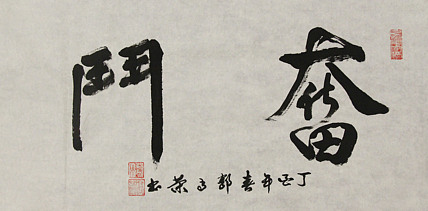 奮鬥
丁酉年春 郭 荣书